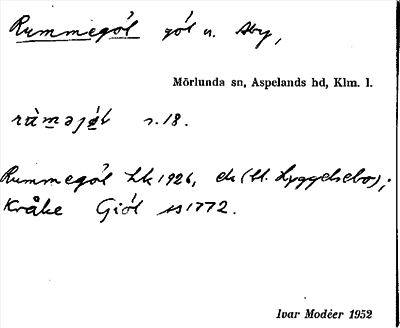 Rummegö́l göl n. Åby,
Mörlunda sn, Aspelands hd, Klm. l.
s.18.
Rummegö́l Lk 1926, ek (bl. Lyggelsebo);
Kråke Giöl ss 1772.
Ivar Modéer 1952